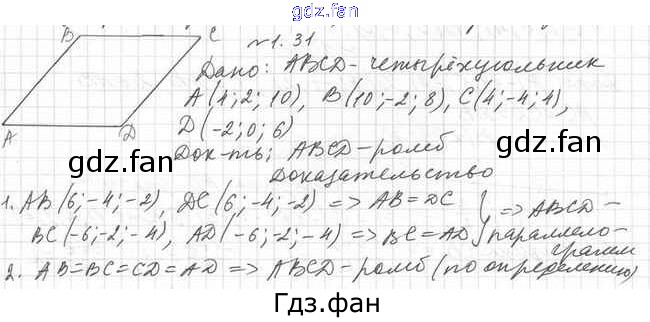 gdz.fan
B C №1.31
Дано: ABCD - четырёхугольник
A(4;2;10), B(10;-2;8), C(4;-4;4),
A D D(-2;0;6)
gdz.fan gdz.fan
Док-ть: ABCD - ромб
Доказательство
1. AB(6;-4;-2), DC(6;-4;-2) => AB=DC } => ABCD -
BC(-6;-2;-4), AD(-6;-2;-4) => BC=AD } параллело-
грамм
2. AB=BC=CD=AD => ABCD - ромб (по определению)
gdz.fan gdz.fan
Гдз.фан